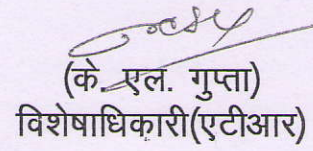 (के. एल. गुप्ता)
विशेषाधिकारी(एटीआर)